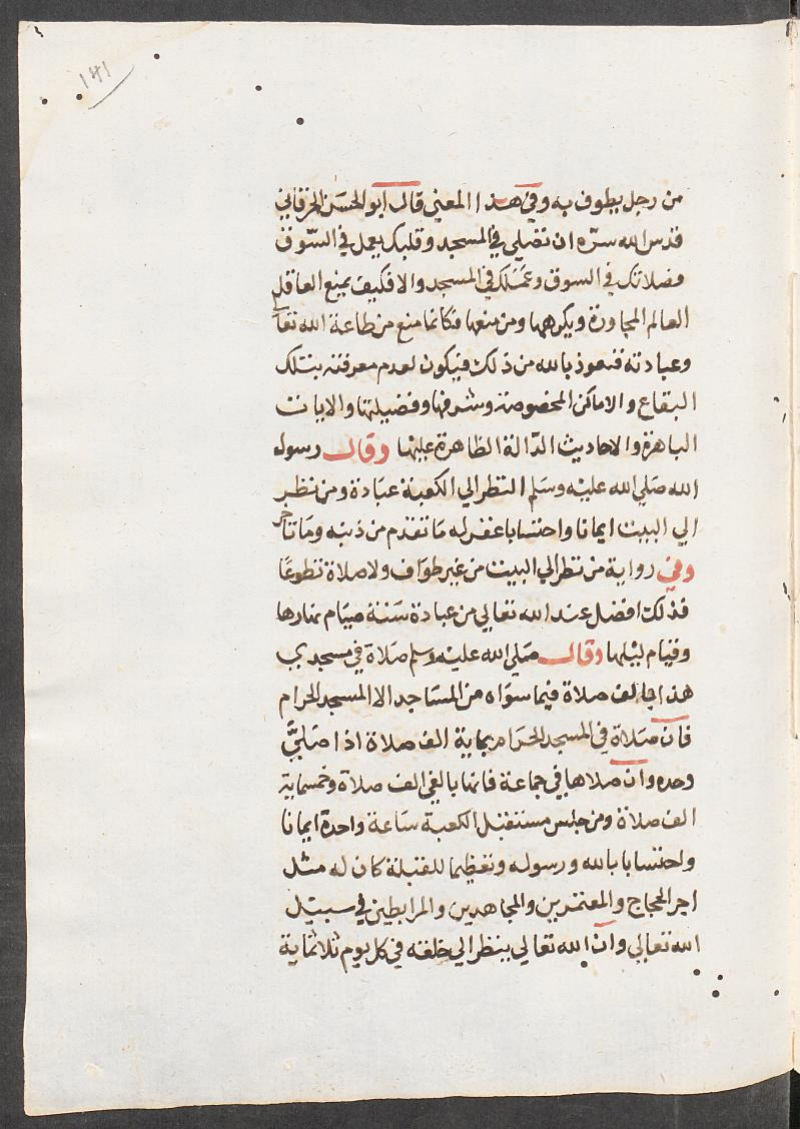 ١٧١
من رجل يطوف به وفي هذا المعني قال ابو الحسن الخرقاني
قدس الله سره ان تصلي في المسجد وقلبك يعمل في السوق
فصلاتك في السوق وعملك في المسجد والا فكيف يمنع العاقل
العالم المجاورة ويكرهها ومن منعها فكانما منع من طاعة الله تعالي
وعبادته فنعوذ بالله من ذلك فيكون لعدم معرفته بتلك
البقاع والاماكن المخصوصة وشرفها وفضيلتها والايات
الباهرة والاحاديث الدالة الظاهرة عليها وقال رسول
الله صلي الله عليه وسلم النظر الي الكعبة عبادة ومن نظر
الي البيت ايمانا واحتسابا غفر له ما تقدم من ذنبه وما تاخر
وفي رواية من نظر الي البيت من غير طواف ولا صلاة تطوعا
فذلك افضل عند الله تعالي من عبادة سنة صيام نهارها
وقيام ليلها وقال صلي الله عليه وسلم صلاة في مسجدي
هذا بالف صلاة فيما سواه من المساجد الا المسجد الحرام
فان صلاة في المسجد الحرام بماية الف صلاة اذا صلي
وحده وان صلاها في جماعة فانها بالفي الف صلاة وخمسماية
الف صلاة ومن جلس مستقبل الكعبة ساعة واحدة ايمانا
واحتسابا بالله ورسوله وتعظيما للقبلة كان له مثل
اجر الحجاج والمعتمرين والمجاهدين والمرابطين في سبيل
الله تعالي وان الله تعالي ينظر الي خلقه في كل يوم ثلاثماية